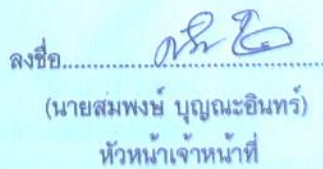 ลงชื่อ......................................
(นายสมพงษ์ บุญณะอินทร์)
หัวหน้าเจ้าหน้าที่